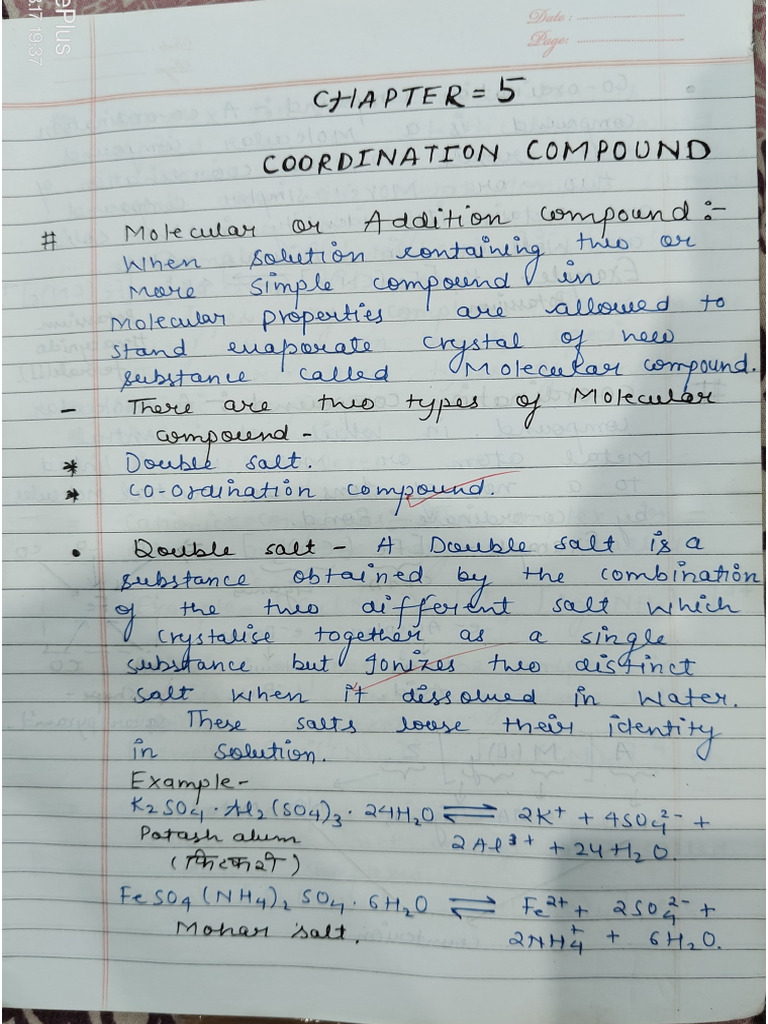 Date :
Page:
CHAPTER = 5
COORDINATION COMPOUND
# Molecular or Addition compound :-
When solution containing two or
more simple compound in
Molecular properties are allowed to
stand evaporate crystal of new
substance called Molecular compound.
- There are two types of Molecular
compound -
* Double salt.
* CO-Ordination compound.
• Double salt - A Double salt is a
substance obtained by the combination
of the two different salt which
crystalise together as a single
substance but Ionizes two distinct
salt when it dissolved in water.
These salts loose their identity
in solution.
Example -
K2SO4 · Al2(SO4)3 · 24H2O ⇌ 2K+ + 4SO4 2- +
Potash alum 2Al3+ + 24H2O.
(फिटकरी)
FeSO4 (NH4)2 SO4 · 6H2O ⇌ Fe2+ + 2SO4 2- +
Mohar salt. 2NH4+ + 6H2O.
17 19:37
ePlus